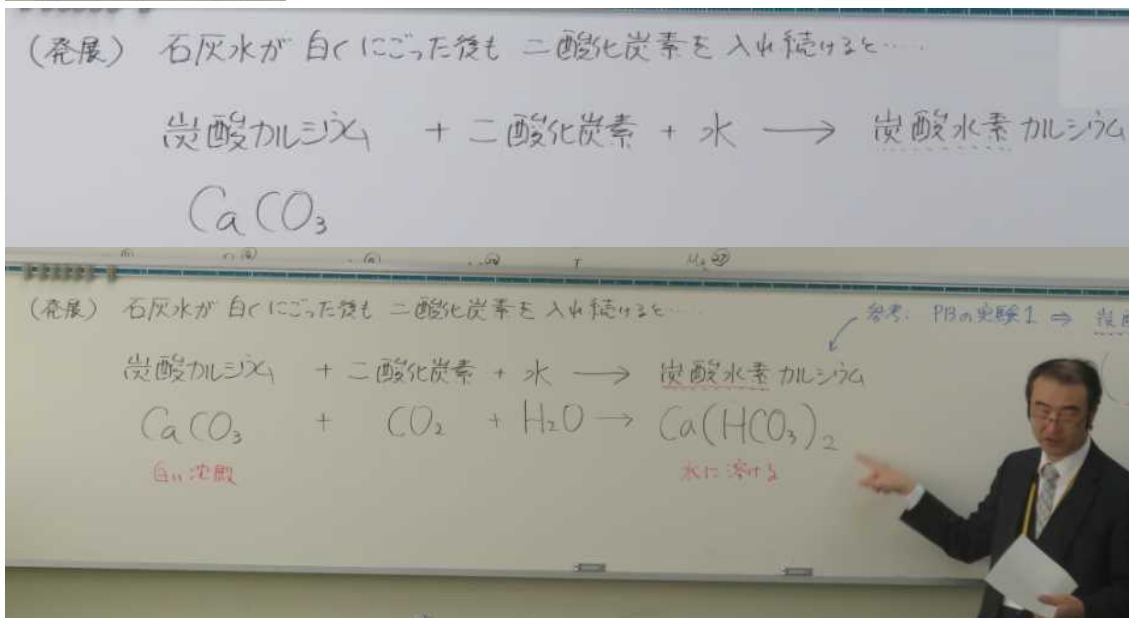 (発展) 石灰水が白くにごった後も二酸化炭素を入れ続けると……
炭酸カルシウム + 二酸化炭素 + 水 → 炭酸水素カルシウム
CaCO₃
(発展) 石灰水が白くにごった後も二酸化炭素を入れ続けると……
参考: P13の実験1 ⇒ 炭酸
炭酸カルシウム + 二酸化炭素 + 水 → 炭酸水素カルシウム
CaCO₃ + CO₂ + H₂O → Ca(HCO₃)₂
白い沈殿 水に溶ける